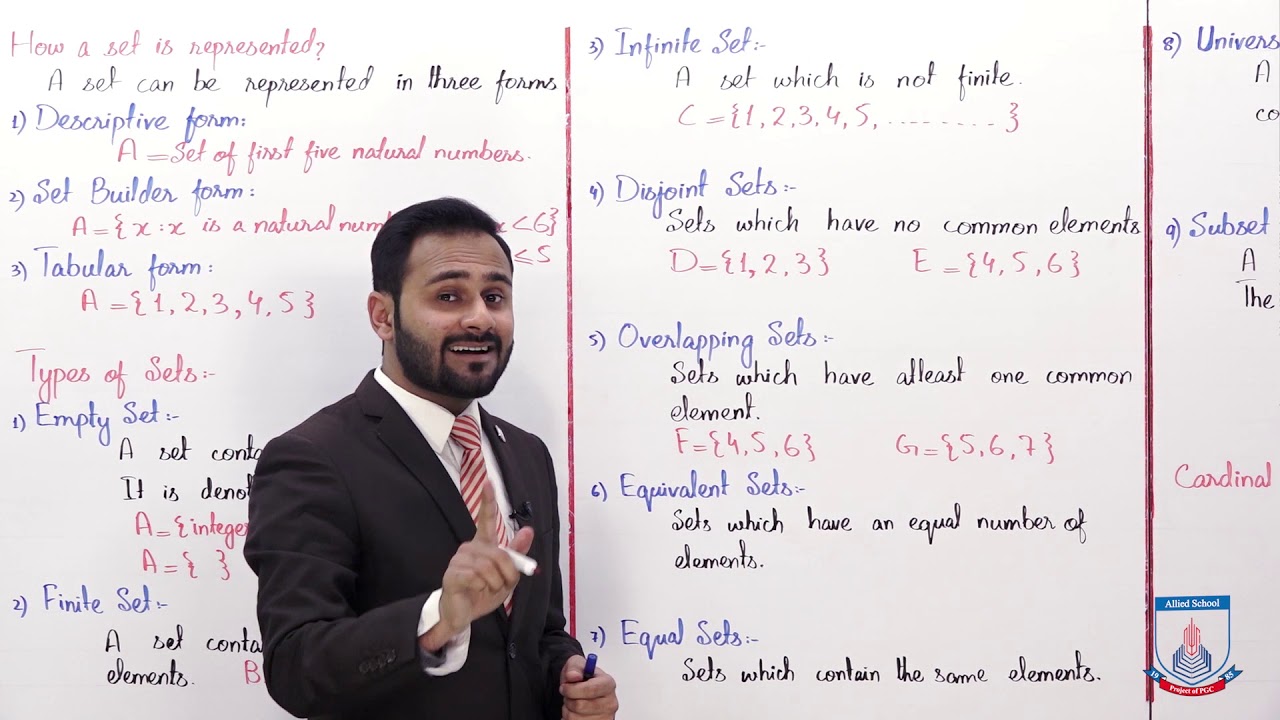 How a set is represented?
A set can be represented in three forms
1) Descriptive form:
A = Set of first five natural numbers.
2) Set Builder form:
A = { x : x is a natural x < 6}
≤ 5
3) Tabular form:
A = {1, 2, 3, 4, 5 }
Types of Sets:-
1) Empty Set:-
A set
It is
A = {
A = { }
2) Finite Set:-
A set
elements. B
3) Infinite Set:-
A set which is not finite.
C = {1, 2, 3, 4, 5, ......... }
4) Disjoint Sets:-
Sets which have no common elements
D = {1, 2, 3 } E = {4, 5, 6 }
5) Overlapping Sets:-
Sets which have atleast one common
element.
F = {4, 5, 6 } G = {5, 6, 7 }
6) Equivalent Sets:-
Sets which have an equal number of
elements.
7) Equal Sets:-
Sets which contain the same elements.
8) Univers
A
co
9) Subset
A
The
Cardinal
Allied School
19 85
Project of PGC